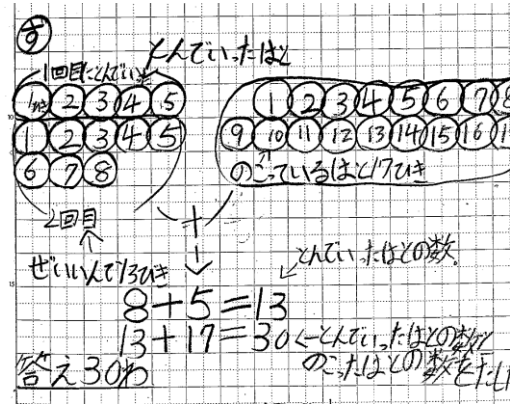 図
とんでいったはと
1回目にとんでいった
1 2 3 4 5
1 2 3 4 5
6 7 8
2回目
ぜいいんで13びき
1 2 3 4 5 6 7 8
9 10 11 12 13 14 15 16 17
のこっているはと17ひき
+
とんでいったはとの数
8+5=13
13+17=30 ←とんでいったはとの数と
のこったはとの数をたし
答え30わ